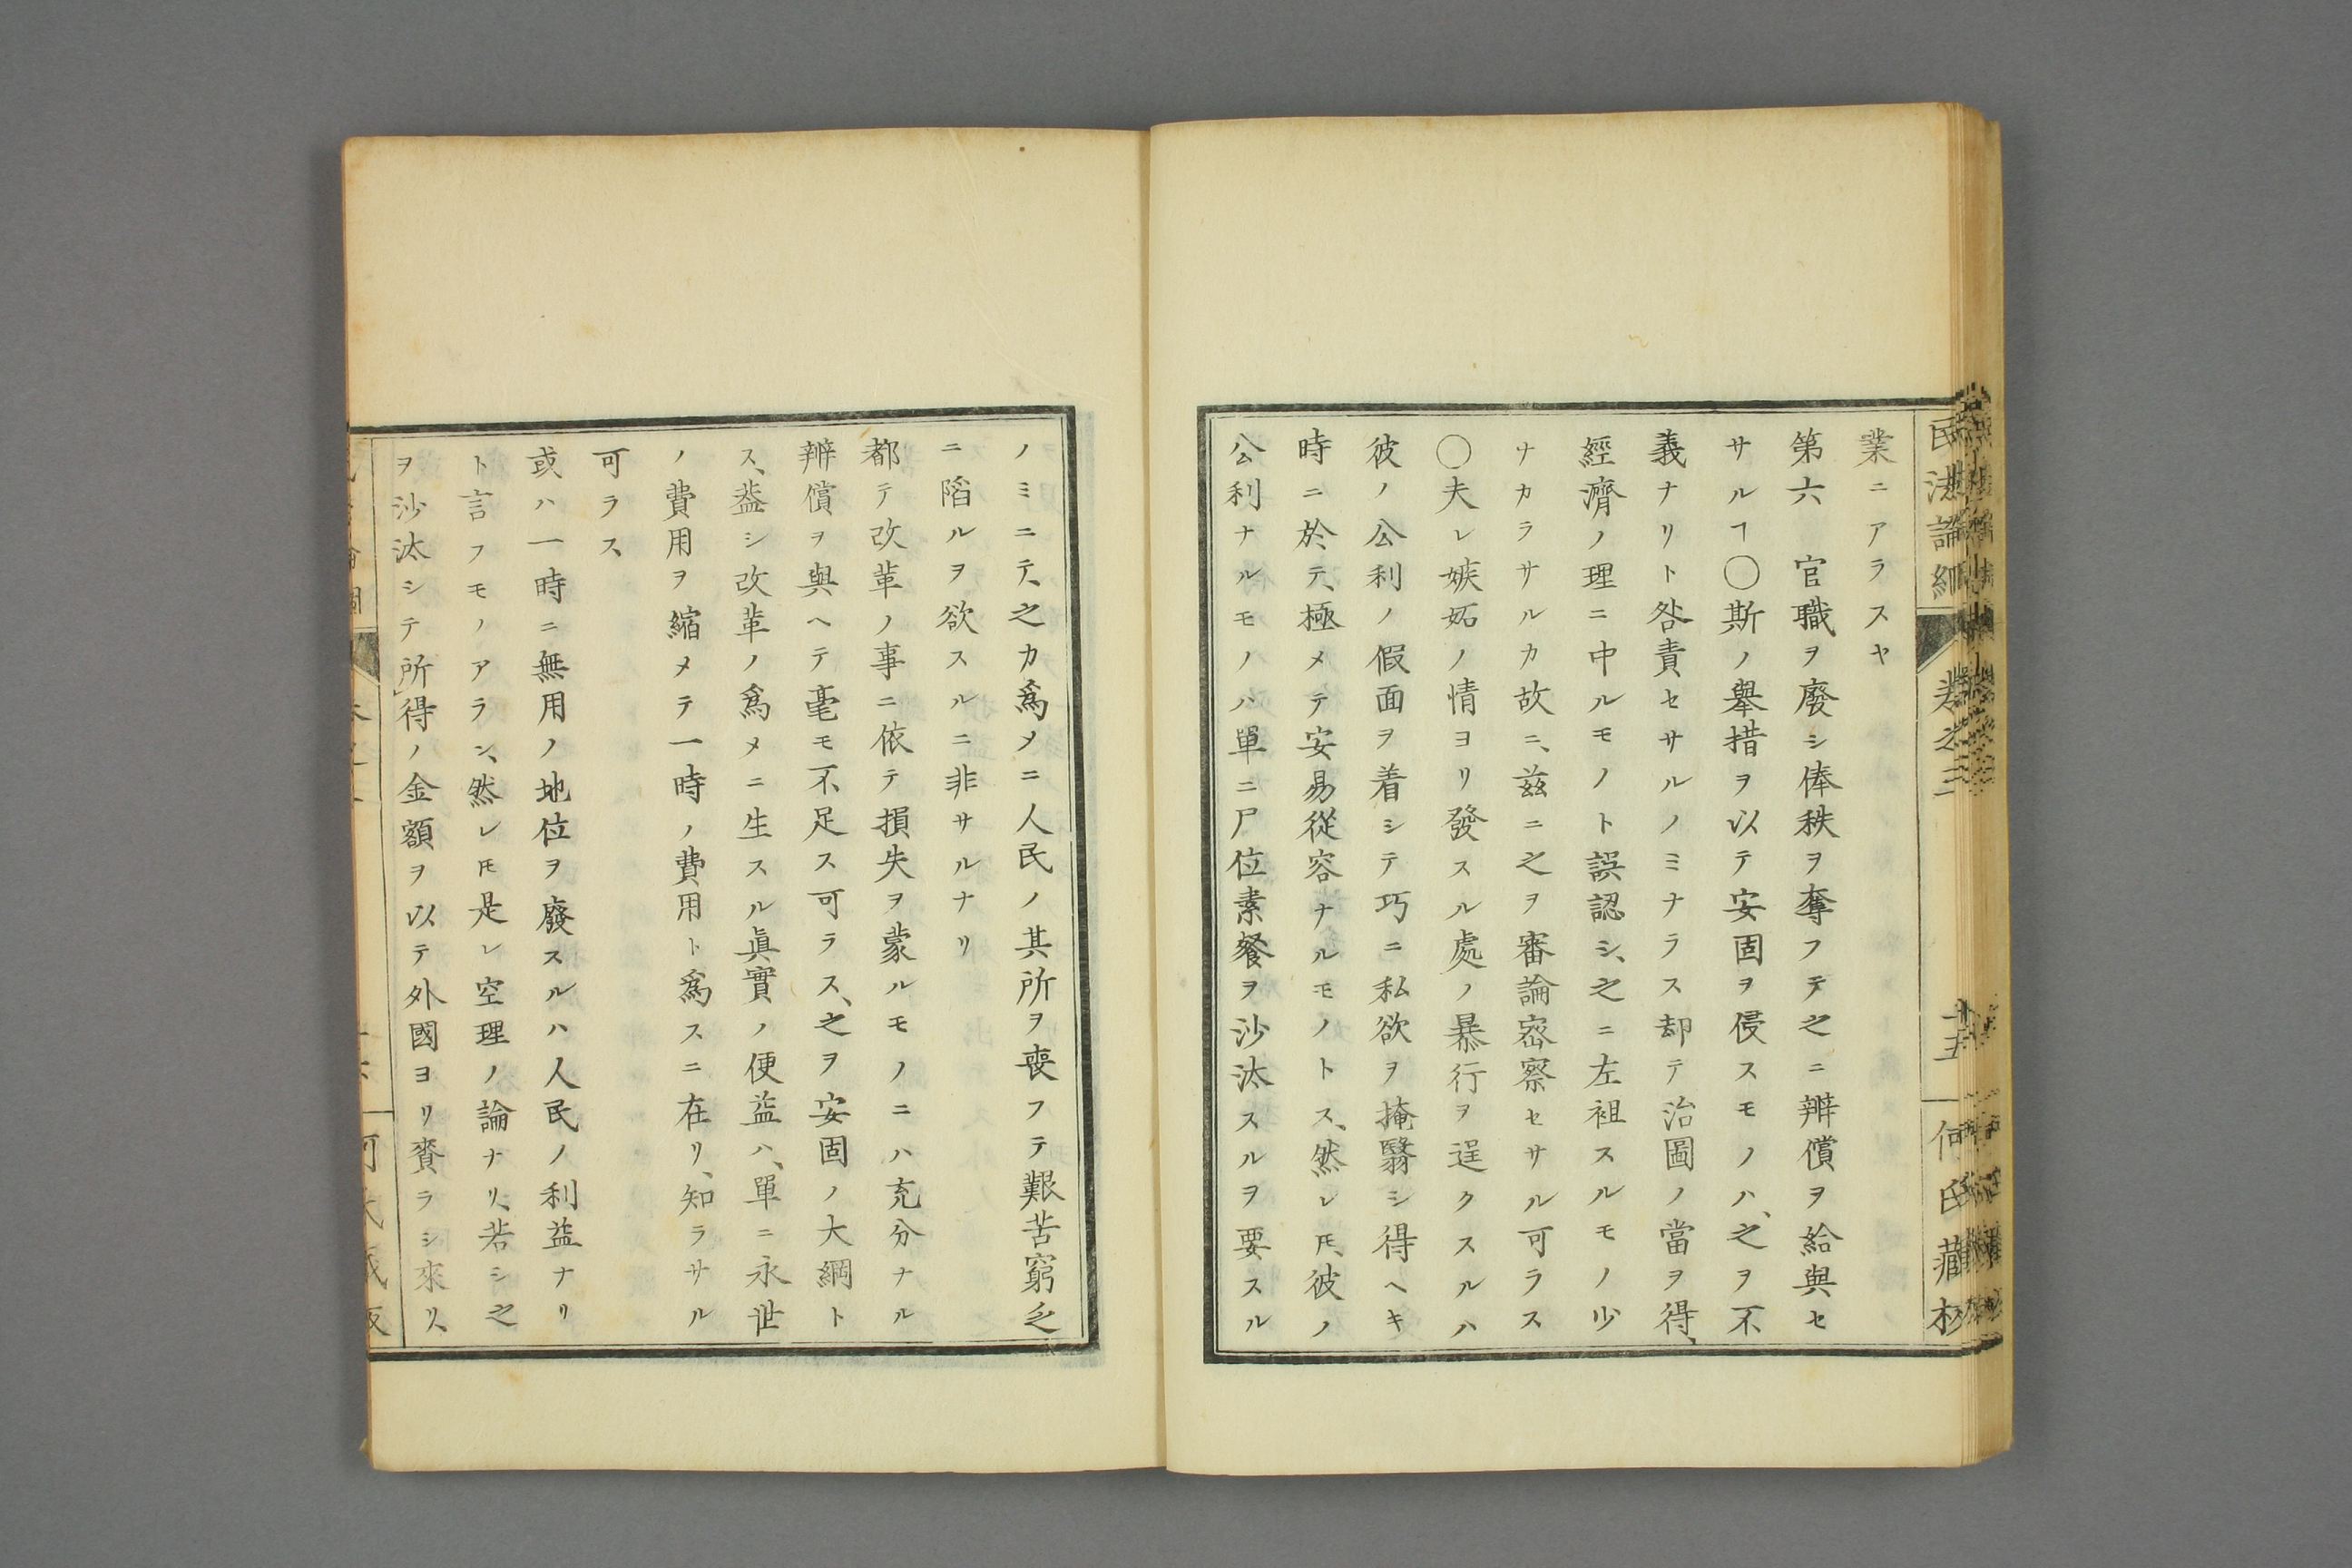 民法論綱
卷之三
十五
何氏藏板
業ニアラスヤ
第六　官職ヲ廢シ俸秩ヲ奪フテ之ニ辨償ヲ給與セ
サルヿ〇斯ノ舉措ヲ以テ安固ヲ侵スモノハ、之ヲ不
義ナリト咎責セサルノミナラス却テ治圖ノ當ヲ得、
經濟ノ理ニ中ルモノト誤認シ、之ニ左袒スルモノ少
ナカラサルカ故ニ、茲ニ之ヲ審論密察セサル可ラス
〇夫レ嫉妬ノ情ヨリ發スル處ノ暴行ヲ逞クスルハ
彼ノ公利ノ假面ヲ着シテ巧ニ私欲ヲ掩翳シ得ヘキ
時ニ於テ、極メテ安易從容ナルモノトス、然レ𪜈、彼ノ
公利ナルモノハ單ニ尸位素餐ヲ沙汰スルヲ要スル
ノミニテ、之カ爲メニ人民ノ其所ヲ喪フテ艱苦窮乏
ニ陷ルヲ欲スルニ非サルナリ
都テ改革ノ事ニ依テ損失ヲ蒙ルモノニハ充分ナル
辨償ヲ與ヘテ毫モ不足ス可ラス、之ヲ安固ノ大綱ト
ス、葢シ改革ノ爲メニ生スル眞實ノ便益ハ、單ニ永世
ノ費用ヲ縮メテ一時ノ費用ト爲スニ在リ、知ラサル
可ラス、
或ハ一時ニ無用ノ地位ヲ廢スルハ人民ノ利益ナリ
ト言フモノアラン、然レ𪜈是レ空理ノ論ナリ、若シ之
ヲ沙汰シテ所得ノ金額ヲ以テ外國ヨリ賚ラシ來リ、